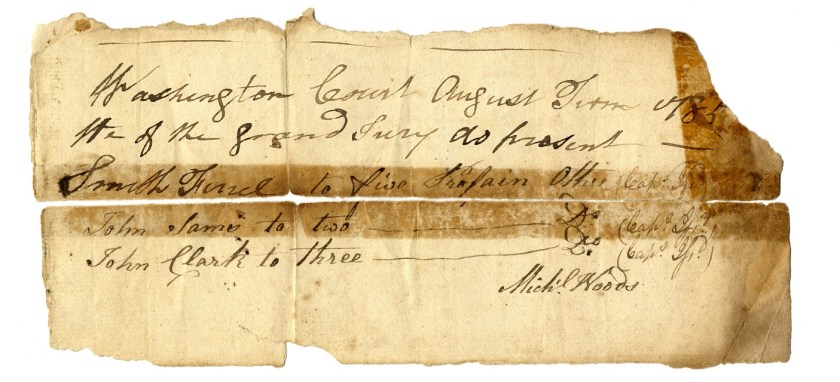 Washington Court August Term 1785
We of the grand Jury do present —
Smith Ferrel to five Profain Othes (Caps.
John Sams to two — Do. (Caps.
John Clark to three — Do. (Caps.
Michl. Woods